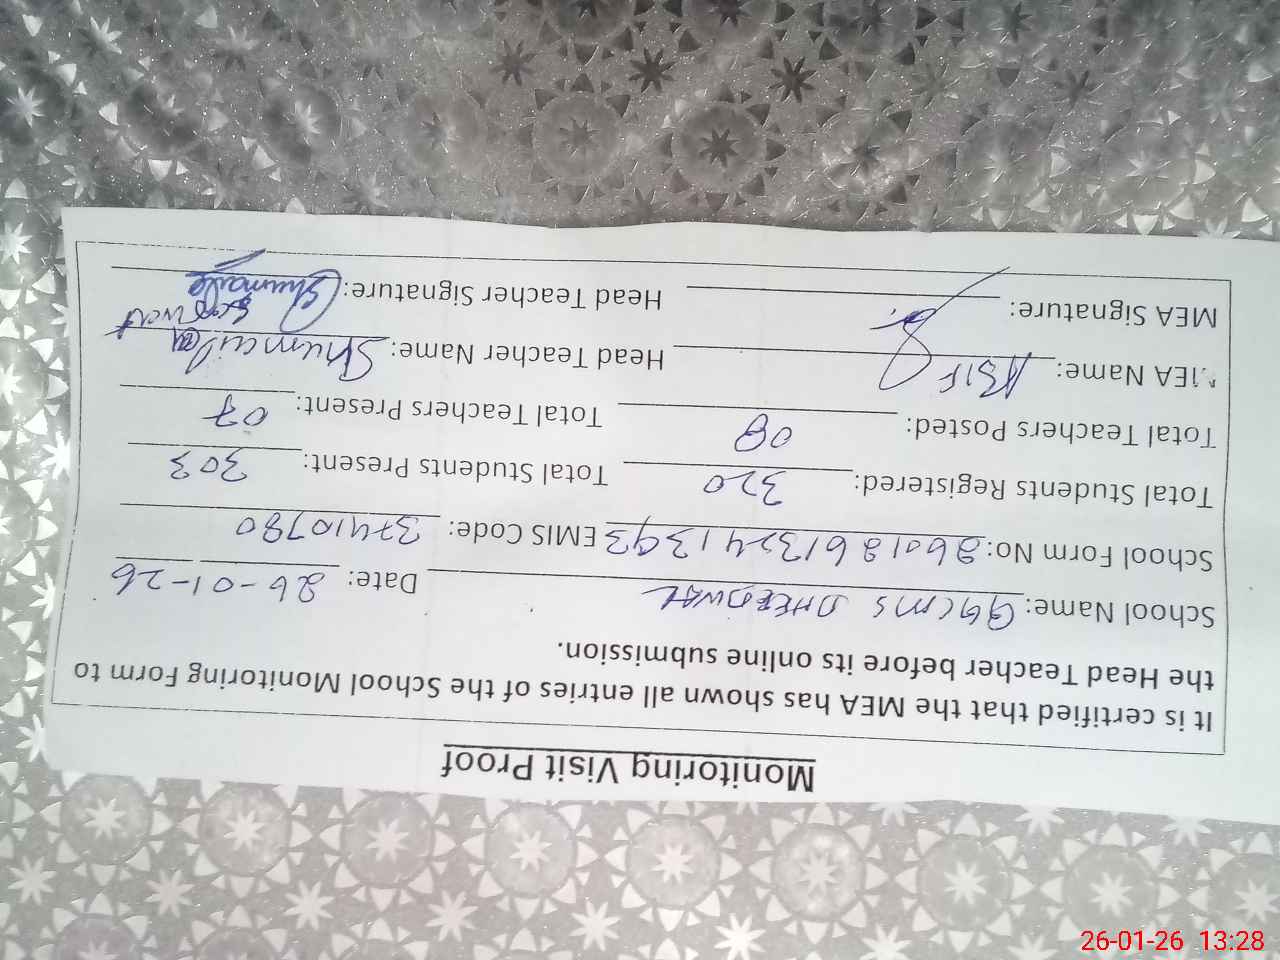 Monitoring Visit Proof
It is certified that the MEA has shown all entries of the School Monitoring Form to
the Head Teacher before its online submission.
School Name: GGCMS DHEEDWAL Date: 26-01-26
School Form No: 26012613241393 EMIS Code: 37410780
Total Students Registered: 320 Total Students Present: 303
Total Teachers Posted: 08 Total Teachers Present: 07
MEA Name: ASIF Head Teacher Name: Shumaila
MEA Signature: Head Teacher Signature: Shumaila
26-01-26 13:28